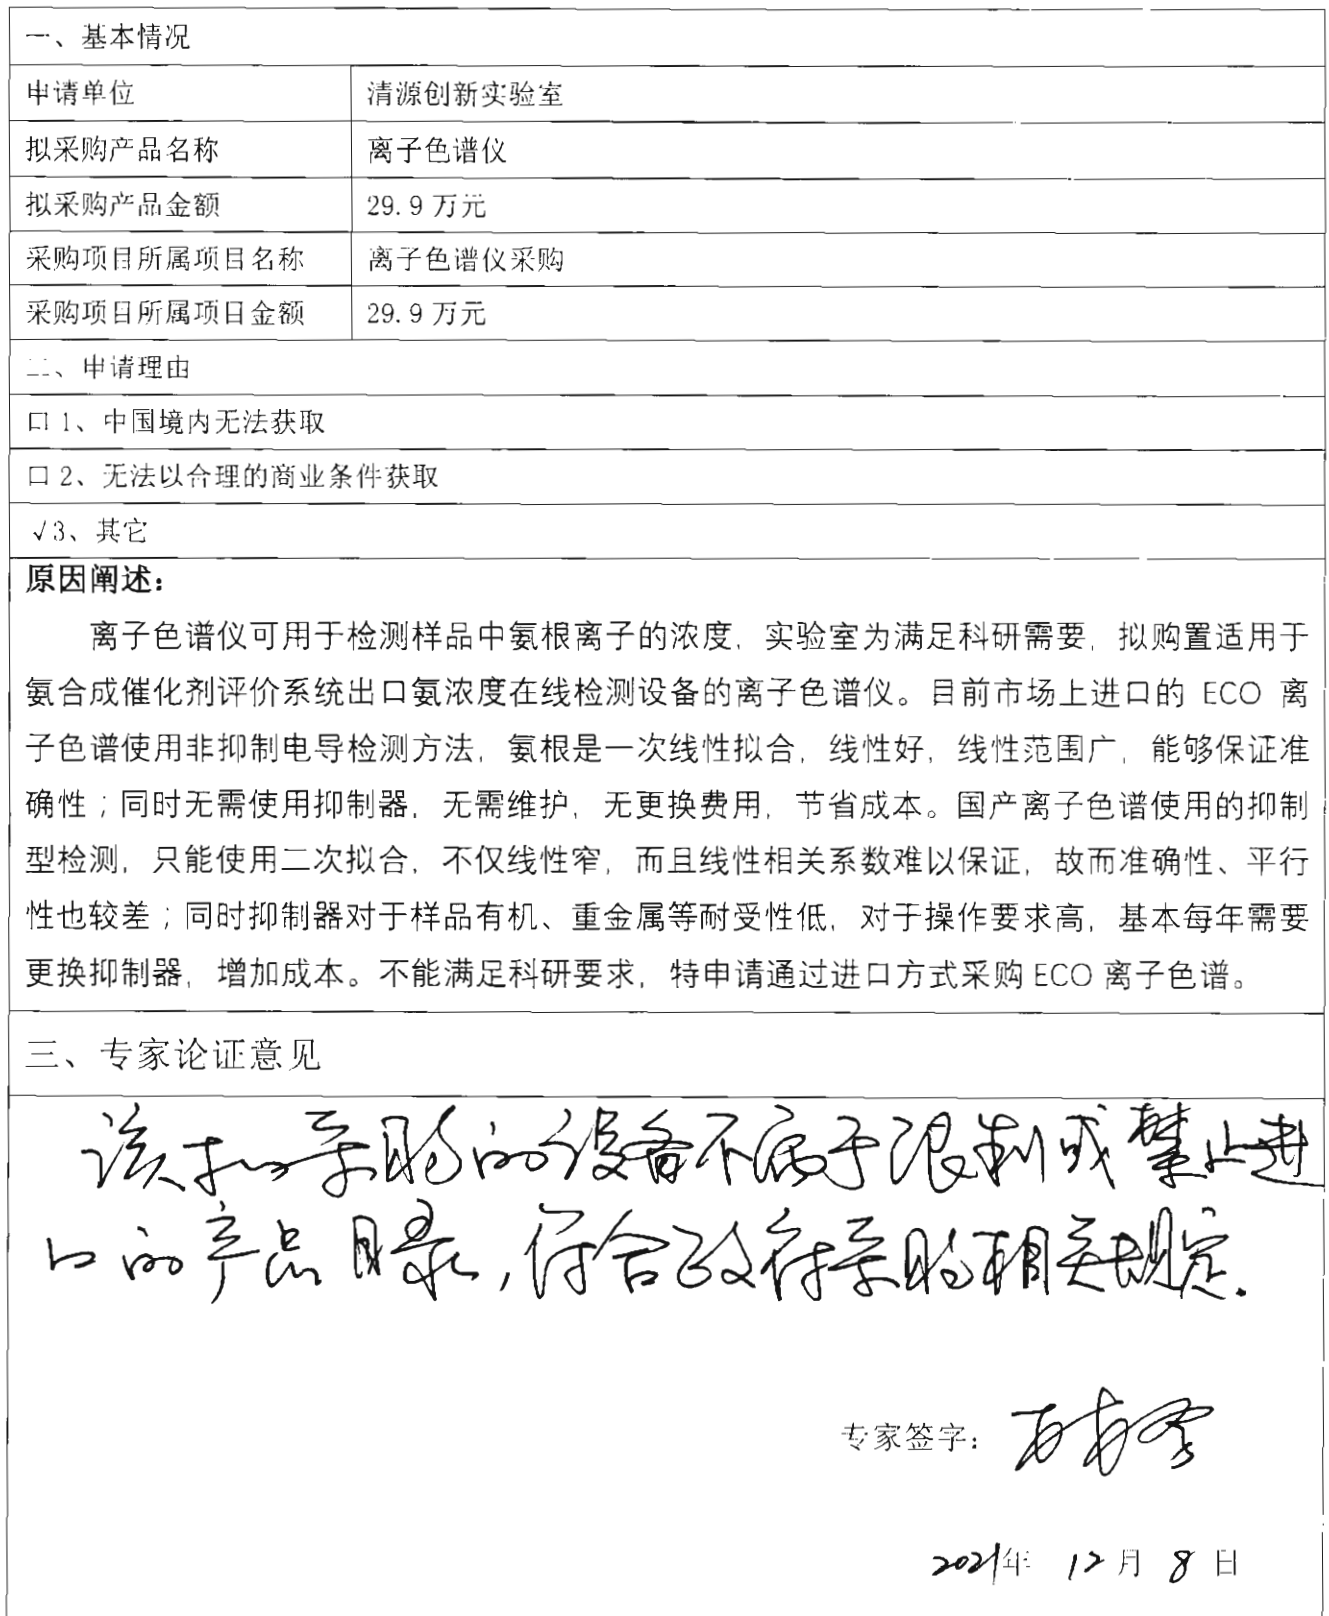 一、基本情况
申请单位 清源创新实验室
拟采购产品名称 离子色谱仪
拟采购产品金额 29.9 万元
采购项目所属项目名称 离子色谱仪采购
采购项目所属项目金额 29.9 万元
二、申请理由
口 1、中国境内无法获取
口 2、无法以合理的商业条件获取
√3、其它
原因阐述：
离子色谱仪可用于检测样品中氨根离子的浓度，实验室为满足科研需要，拟购置适用于
氨合成催化剂评价系统出口氨浓度在线检测设备的离子色谱仪。目前市场上进口的 ECO 离
子色谱使用非抑制电导检测方法，氨根是一次线性拟合，线性好，线性范围广，能够保证准
确性；同时无需使用抑制器，无需维护，无更换费用，节省成本。国产离子色谱使用的抑制
型检测，只能使用二次拟合，不仅线性窄，而且线性相关系数难以保证，故而准确性、平行
性也较差；同时抑制器对于样品有机、重金属等耐受性低，对于操作要求高，基本每年需要
更换抑制器，增加成本。不能满足科研要求，特申请通过进口方式采购 ECO 离子色谱。
三、专家论证意见
该拟采购的设备不属于限制或禁止进
口的产品目录，符合政府采购相关规定.
专家签字：
2021年 12 月 8 日